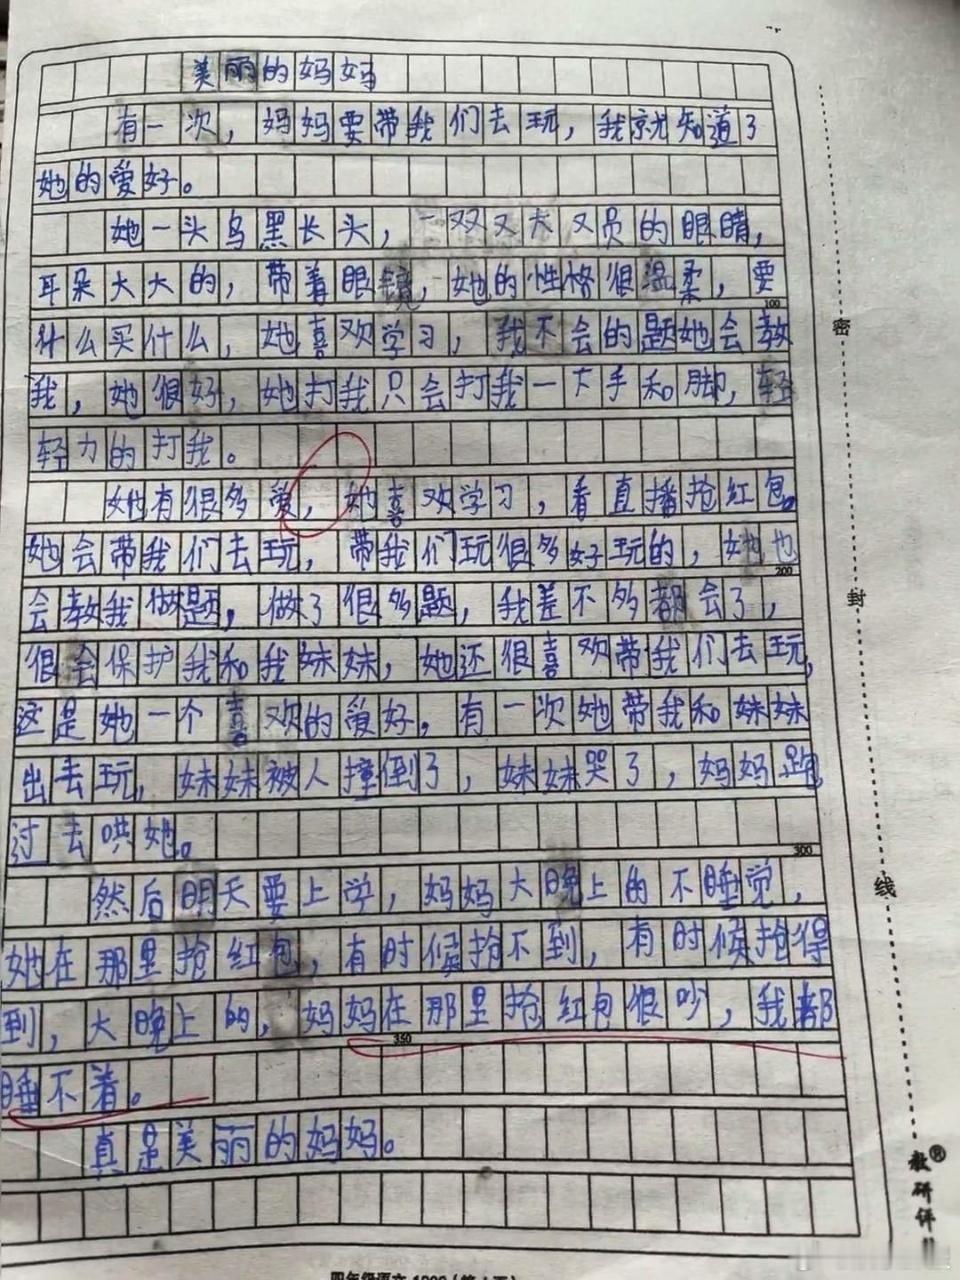 美丽的妈妈
有一次，妈妈要带我们去玩，我就知道了
她的爱好。
她一头乌黑长头，一双又大又员的眼睛，
耳朵大大的，带着眼镜，她的性格很温柔，要
什么买什么，她喜欢学习，我不会的题她会教
100
我，她很好，她打我只会打我一下手和脚，轻
轻力的打我。
她有很多爱，她喜欢学习，看直播抢红包。
她会带我们去玩，带我们玩很多好玩的，她也
200
会教我做题，做了很多题，我差不多都会了，
很会保护我和我妹妹，她还很喜欢带我们去玩，
这是她一个喜欢的爱好，有一次她带我和妹妹
出去玩，妹妹被人撞倒了，妹妹哭了，妈妈跑
过去哄她。
300
然后明天要上学，妈妈大晚上的不睡觉，
她在那里抢红包，有时候抢不到，有时候抢得
到，大晚上的，妈妈在那里抢红包很吵，我都
350
睡不着。
真是美丽的妈妈。
密
封
线
教研评